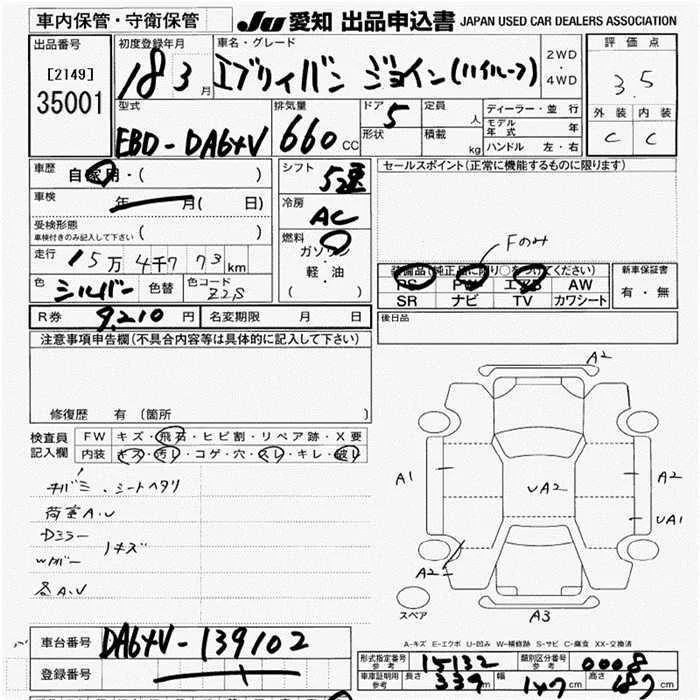 車内保管・守衛保管 JU 愛知 出品申込書 JAPAN USED CAR DEALERS ASSOCIATION
出品番号 [2149] 35001
初度登録年月 18 3 月
車名・グレード エブリィバン ジョイン(ハイルーフ)
2WD ・ 4WD
評価点 3.5
外装 内装
C C
型式 EBD-DA64V
排気量 660 CC
ドア 5
形状
定員 人
積載 kg
ディーラー・並行
モデル年式 年
ハンドル 左・右
車歴 自家用・( )
車検 年 月( 日)
受検形態
車検付きのみ記入して下さい ( )
走行 15万 4千 773 km
色 シルバー 色替 色コード Z2S
シフト 5速
冷房 AC
燃料 ガソリン・軽・油
( )
セールスポイント(正常に機能するものに限ります)
Fのみ
装備品(純正品に限り○をつけてください)
PS PW エアB AW
SR ナビ TV カワシート
新車保証書
有・無
後日品
R券 9,210 円 名変期限 月 日
注意事項申告欄(不具合内容等は具体的に記入して下さい)
修復歴 有 〔箇所 〕
検査員記入欄
FW キズ・飛石・ヒビ割・リペア跡・X要
内装 キズ・汚レ・コゲ・穴・スレ・キレ・破レ
シートヘタリ
荷室A.U
Dミラー
Wカバー
キズ
各A.U
A2
A1
UA2
A2
UA1
A2
A3
スペア
A-キズ E-エクボ U-凹み W-補修跡 S-サビ C-腐食 XX-交換済
車台番号 DA64V-139102
登録番号
形式指定番号 参考 15132
類別区分番号 参考 0008
車庫証明用 参考 長さ 339 cm 幅 147 cm 高さ 187 cm